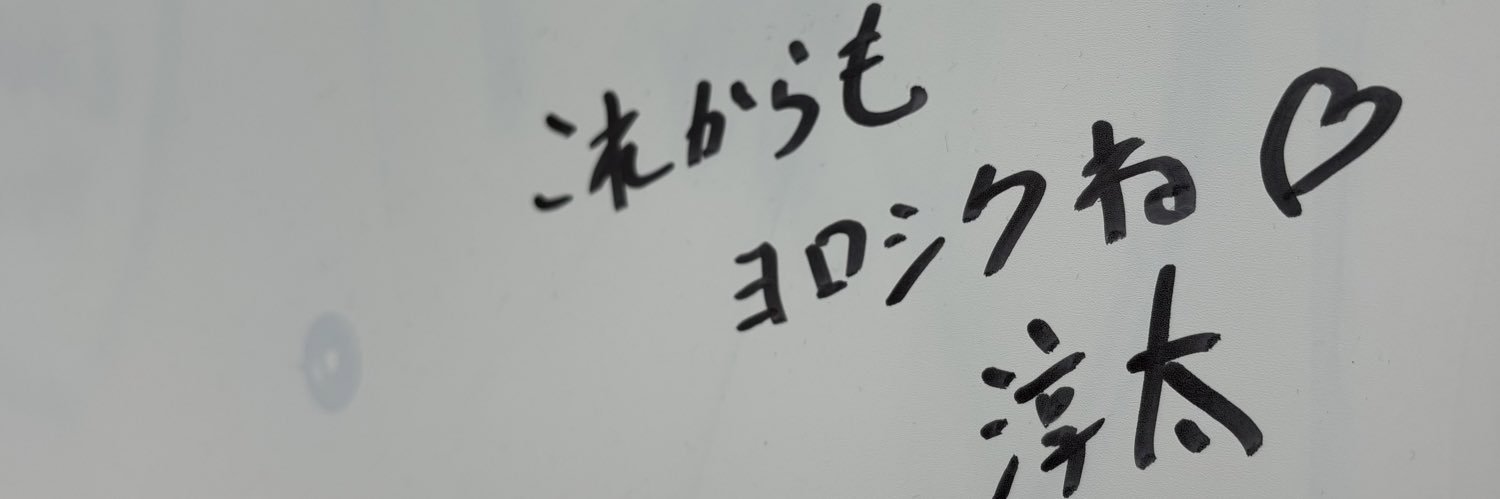 これからも
ヨロシクね♡
淳太